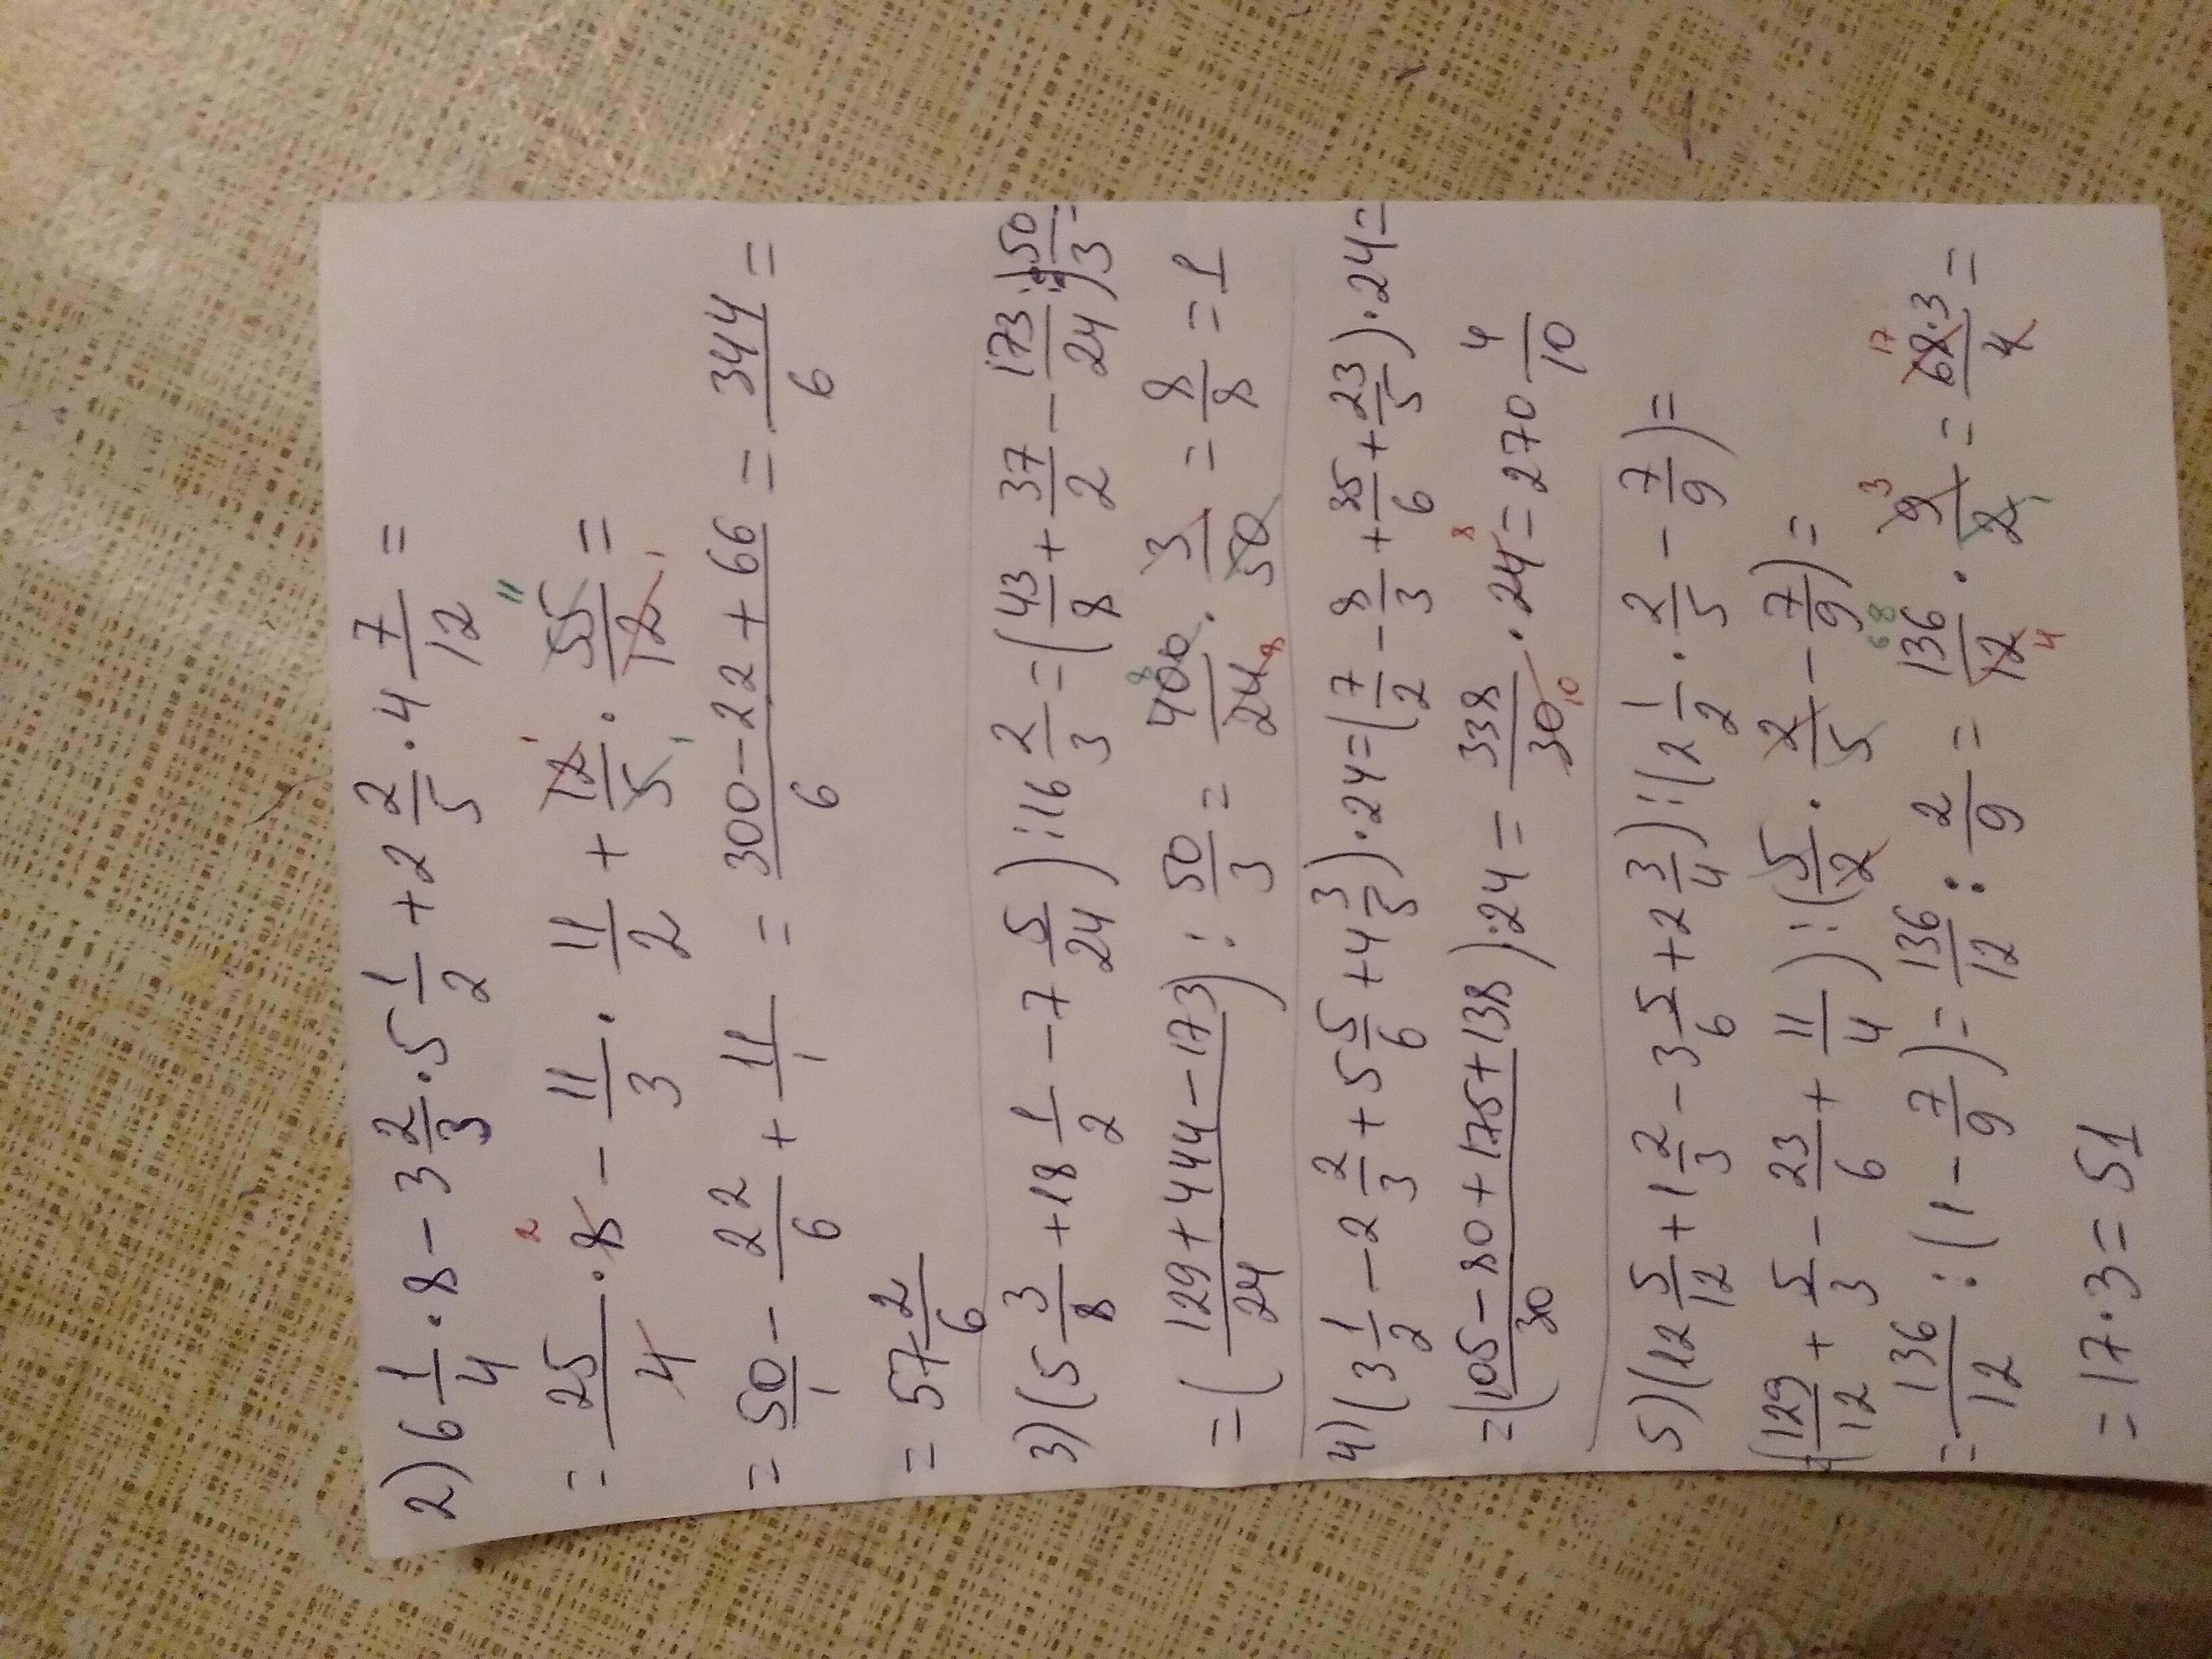 2) 6 1/4 · 8 − 3 2/3 · 5 1/2 + 2 2/5 · 4 7/12 =
= 25/4 · 8 2 − 11/3 · 11/2 + 12 1/5 1 · 55 11/12 1 =
= 50/1 − 22/6 + 11/1 = 300−22+66/6 = 344/6 =
= 57 2/6
3) (5 3/8 + 18 1/2 − 7 5/24) : 16 2/3 = (43/8 + 37/2 − 173/24) : 50/3 =
= (129+444−173/24) : 50/3 = 400 8/24 8 · 3/50 = 8/8 = 1
4) (3 1/2 − 2 2/3 + 5 5/6 + 4 3/5) · 24 = (7/2 − 8/3 + 35/6 + 23/5) · 24 =
= (105−80+175+138/30) · 24 = 338/30 10 · 24 8 = 270 4/10
5) (12 5/12 + 1 2/3 − 3 5/6 + 2 3/4) : (2 1/2 · 2/5 − 7/9) =
= (129/12 + 5/3 − 23/6 + 11/4) : (5/2 · 2/5 − 7/9) =
= 136/12 : (1 − 7/9) = 136/12 : 2/9 = 136 68/12 4 · 9 3/2 1 = 68 17 · 3/4 =
= 17 · 3 = 51